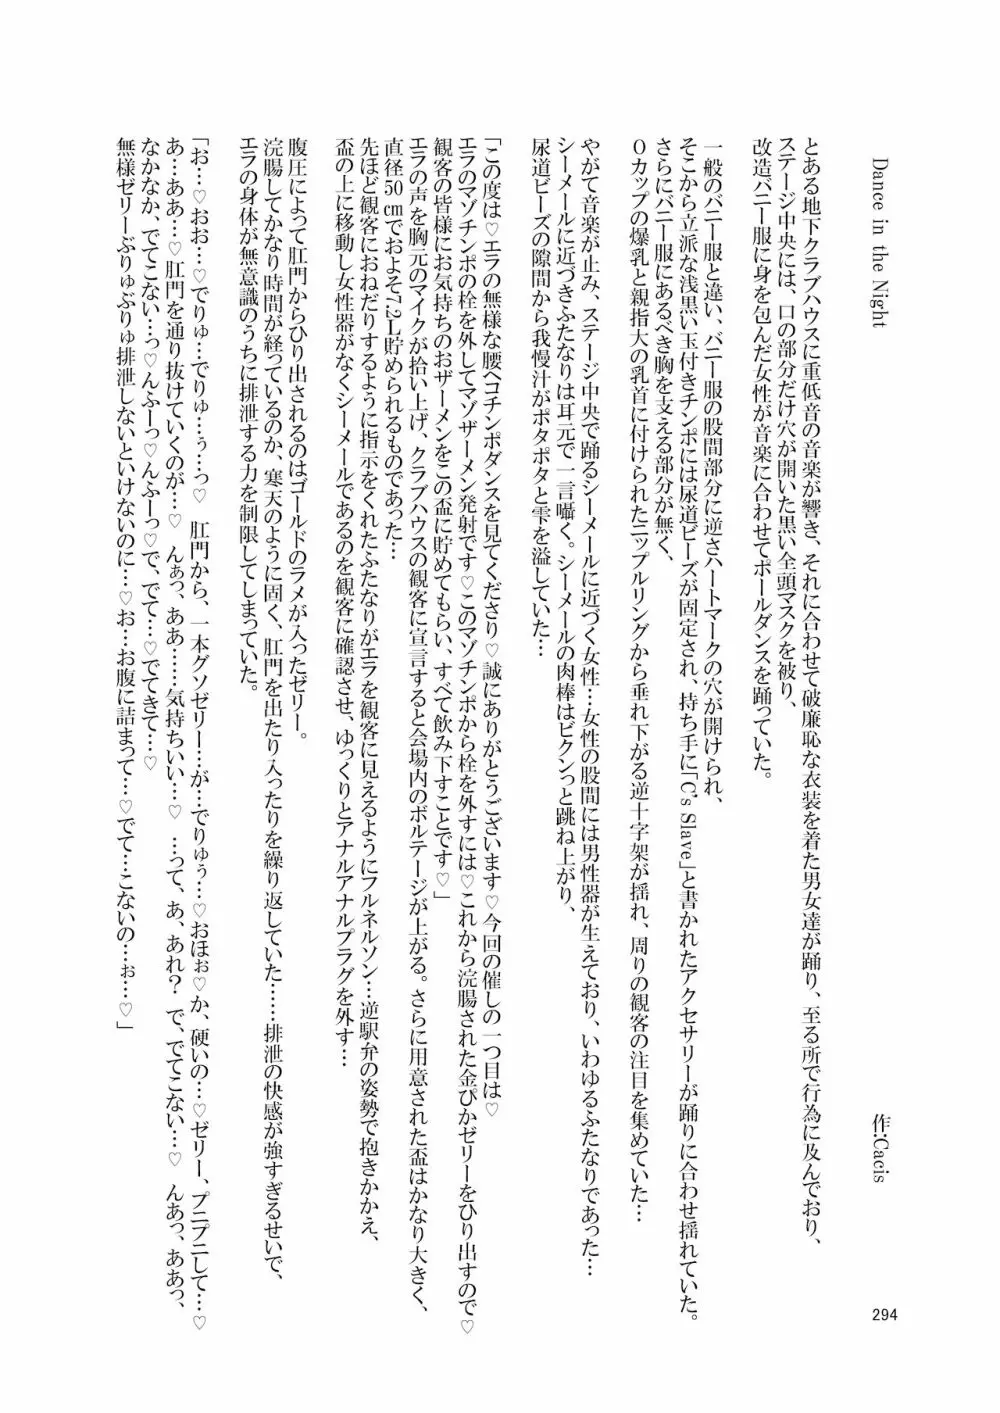 Dance in the Night
作:Cacis
とある地下クラブハウスに重低音の音楽が響き、それに合わせて破廉恥な衣装を着た男女達が踊り、至る所で行為に及んでおり、
ステージ中央には、口の部分だけ穴が開いた黒い全頭マスクを被り、
改造バニー服に身を包んだ女性が音楽に合わせてポールダンスを踊っていた。
一般のバニー服と違い、バニー服の股間部分に逆さハートマークの穴が開けられ、
そこから立派な浅黒い玉付きチンポには尿道ビーズが固定され、持ち手に「C's Slave」と書かれたアクセサリーが踊りに合わせ揺れていた。
さらにバニー服にあるべき胸を支える部分が無く、
Oカップの爆乳と親指大の乳首に付けられたニップルリングから垂れ下がる逆十字架が揺れ、周りの観客の注目を集めていた…
やがて音楽が止み、ステージ中央で踊るシーメールに近づく女性…女性の股間には男性器が生えており、いわゆるふたなりであった…
シーメールに近づきふたなりは耳元で一言囁く。シーメールの肉棒はビクンっと跳ね上がり、
尿道ビーズの隙間から我慢汁がポタポタと雫を溢していた…
「この度は♡エラの無様な腰ヘコチンポダンスを見てくださり♡誠にありがとうございます♡今回の催しの一つ目は♡
エラのマゾチンポの栓を外してマゾザーメン発射です♡このマゾチンポから栓を外すには♡これから浣腸された金ぴかゼリーをひり出すので♡
観客の皆様にお気持ちのおザーメンをこの盃に貯めてもらい、すべて飲み下すことです♡」
エラの声を胸元のマイクが拾い上げ、クラブハウスの観客に宣言すると会場内のボルテージが上がる。さらに用意された盃はかなり大きく、
直径50㎝でおよそ7.2L貯められるものであった…
先ほど観客におねだりするように指示をくれたふたなりがエラを観客に見えるようにフルネルソン…逆駅弁の姿勢で抱きかかえ、
盃の上に移動し女性器がなくシーメールであるのを観客に確認させ、ゆっくりとアナルアナルプラグを外す…
腹圧によって肛門からひり出されるのはゴールドのラメが入ったゼリー。
浣腸してかなり時間が経っているのか、寒天のように固く、肛門を出たり入ったりを繰り返していた……排泄の快感が強すぎるせいで、
エラの身体が無意識のうちに排泄する力を制限してしまっていた。
「お…♡おお…♡でりゅ…でりゅ…ぅ…っ♡　肛門から、一本グソゼリー…が…でりゅぅ…♡おほぉ♡か、硬いの…♡ゼリー、プニプニして…♡
あ…ああ…♡肛門を通り抜けていくのが…♡　んぁっ、ああ……気持ちいい…♡　…って、あ、あれ?　で、でてこない…♡　んあっ、ああっ、
なかなか、でてこない…っ♡んふーっ♡んふーっ♡で、でて…♡でてきて…♡
無様ゼリーぶりゅぶりゅ排泄しないといけないのに…♡お…お腹に詰まって…♡でて…こないの…ぉ…♡」
294